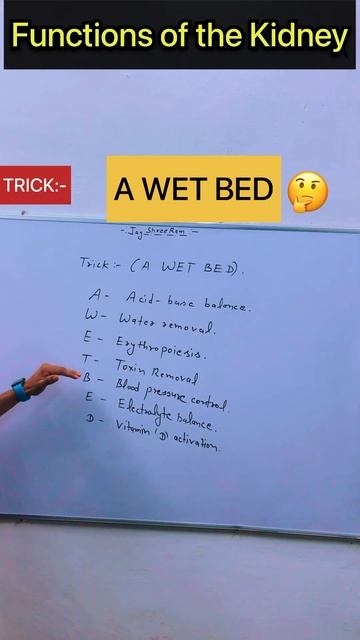 Functions of the Kidney
TRICK:-
A WET BED 🤔
-. Jay Shree Ram -
Trick:- (A WET BED).
A - Acid - base balance.
W - Water removal.
E - Erythropoiesis.
T - Toxin Removal
B - Blood pressure control.
E - Electrolyte balance.
D - Vitamin 'D' activation.